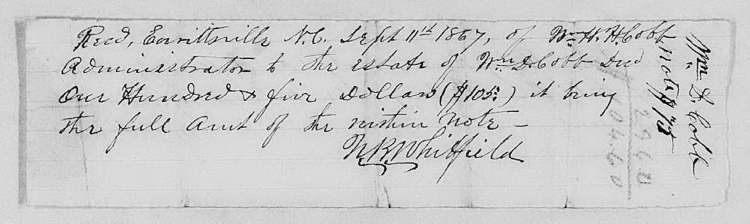 Recd, Everittsville N.C. Sept 11th 1867, of Wm H. H. Cobb
Administrator to the estate of Wm D. Cobb Decd
One Hundred & five Dollars ($105.) it being
the full Amt of the within Note —
N B Whitfield
Wm D. Cobb
note $75
29 60
104.60